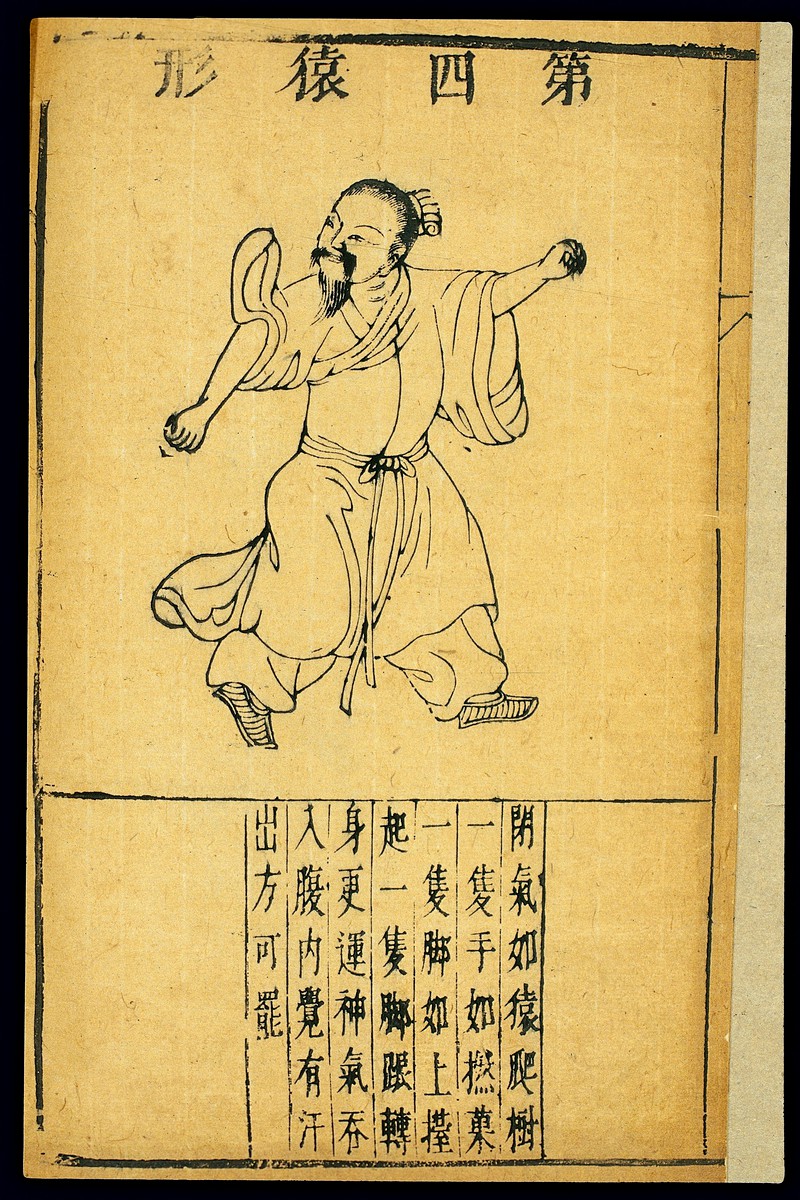 第四猿形
閉氣如猿爬樹
一隻手如撚菓
一隻脚如上擡
起一隻脚跟轉
身更運神氣吞
入腹内覺有汗
出方可罷